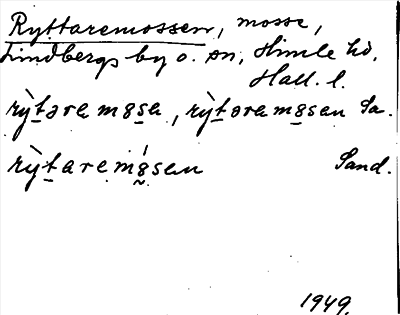 Ryttaremossen, mosse,
Lindbergs by o. sn, Himle hd,
Hall. l.
rỳtəremåse, rỳtəremåsen Sa.
rỳtaremåsen Sand.
1949.